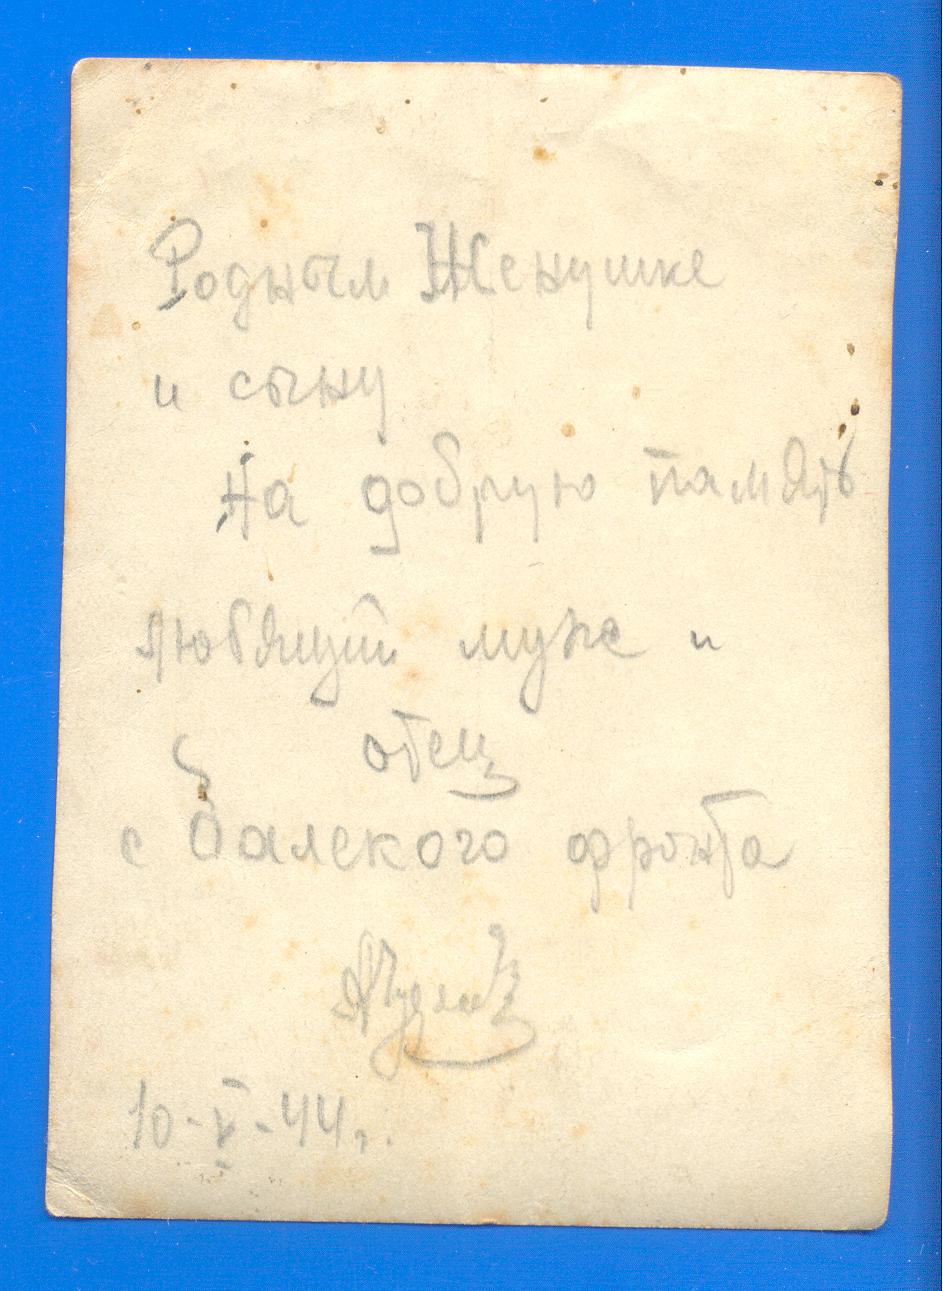 Родным Женушке
и сыну
На добрую память
любящий муж и
отец
с далекого фронта
10-V-44г.